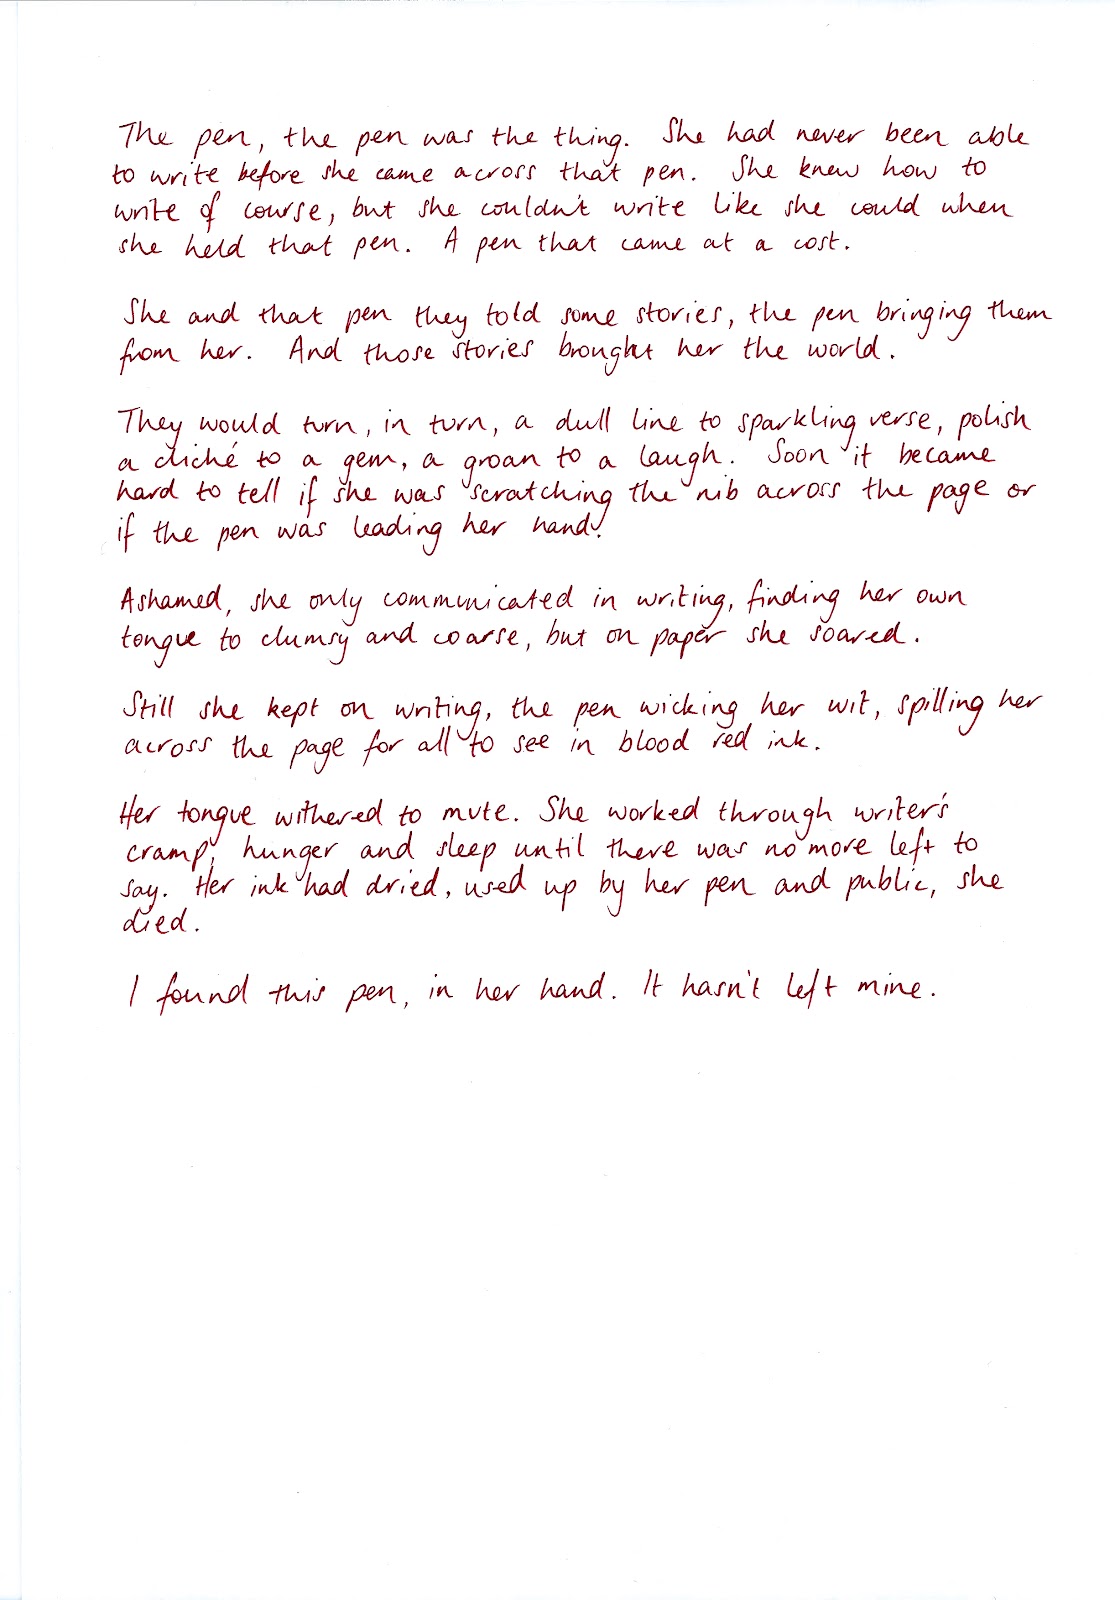 The pen, the pen was the thing. She had never been able
to write before she came across that pen. She knew how to
write of course, but she couldn't write like she could when
she held that pen. A pen that came at a cost.
She and that pen they told some stories, the pen bringing them
from her. And those stories brought her the world.
They would turn, in turn, a dull line to sparkling verse, polish
a cliché to a gem, a groan to a laugh. Soon it became
hard to tell if she was scratching the nib across the page or
if the pen was leading her hand.
Ashamed, she only communicated in writing, finding her own
tongue to clumsy and coarse, but on paper she soared.
Still she kept on writing, the pen wicking her wit, spilling her
across the page for all to see in blood red ink.
Her tongue withered to mute. She worked through writer's
cramp, hunger and sleep until there was no more left to
say. Her ink had dried, used up by her pen and public, she
died.
I found this pen, in her hand. It hasn't left mine.